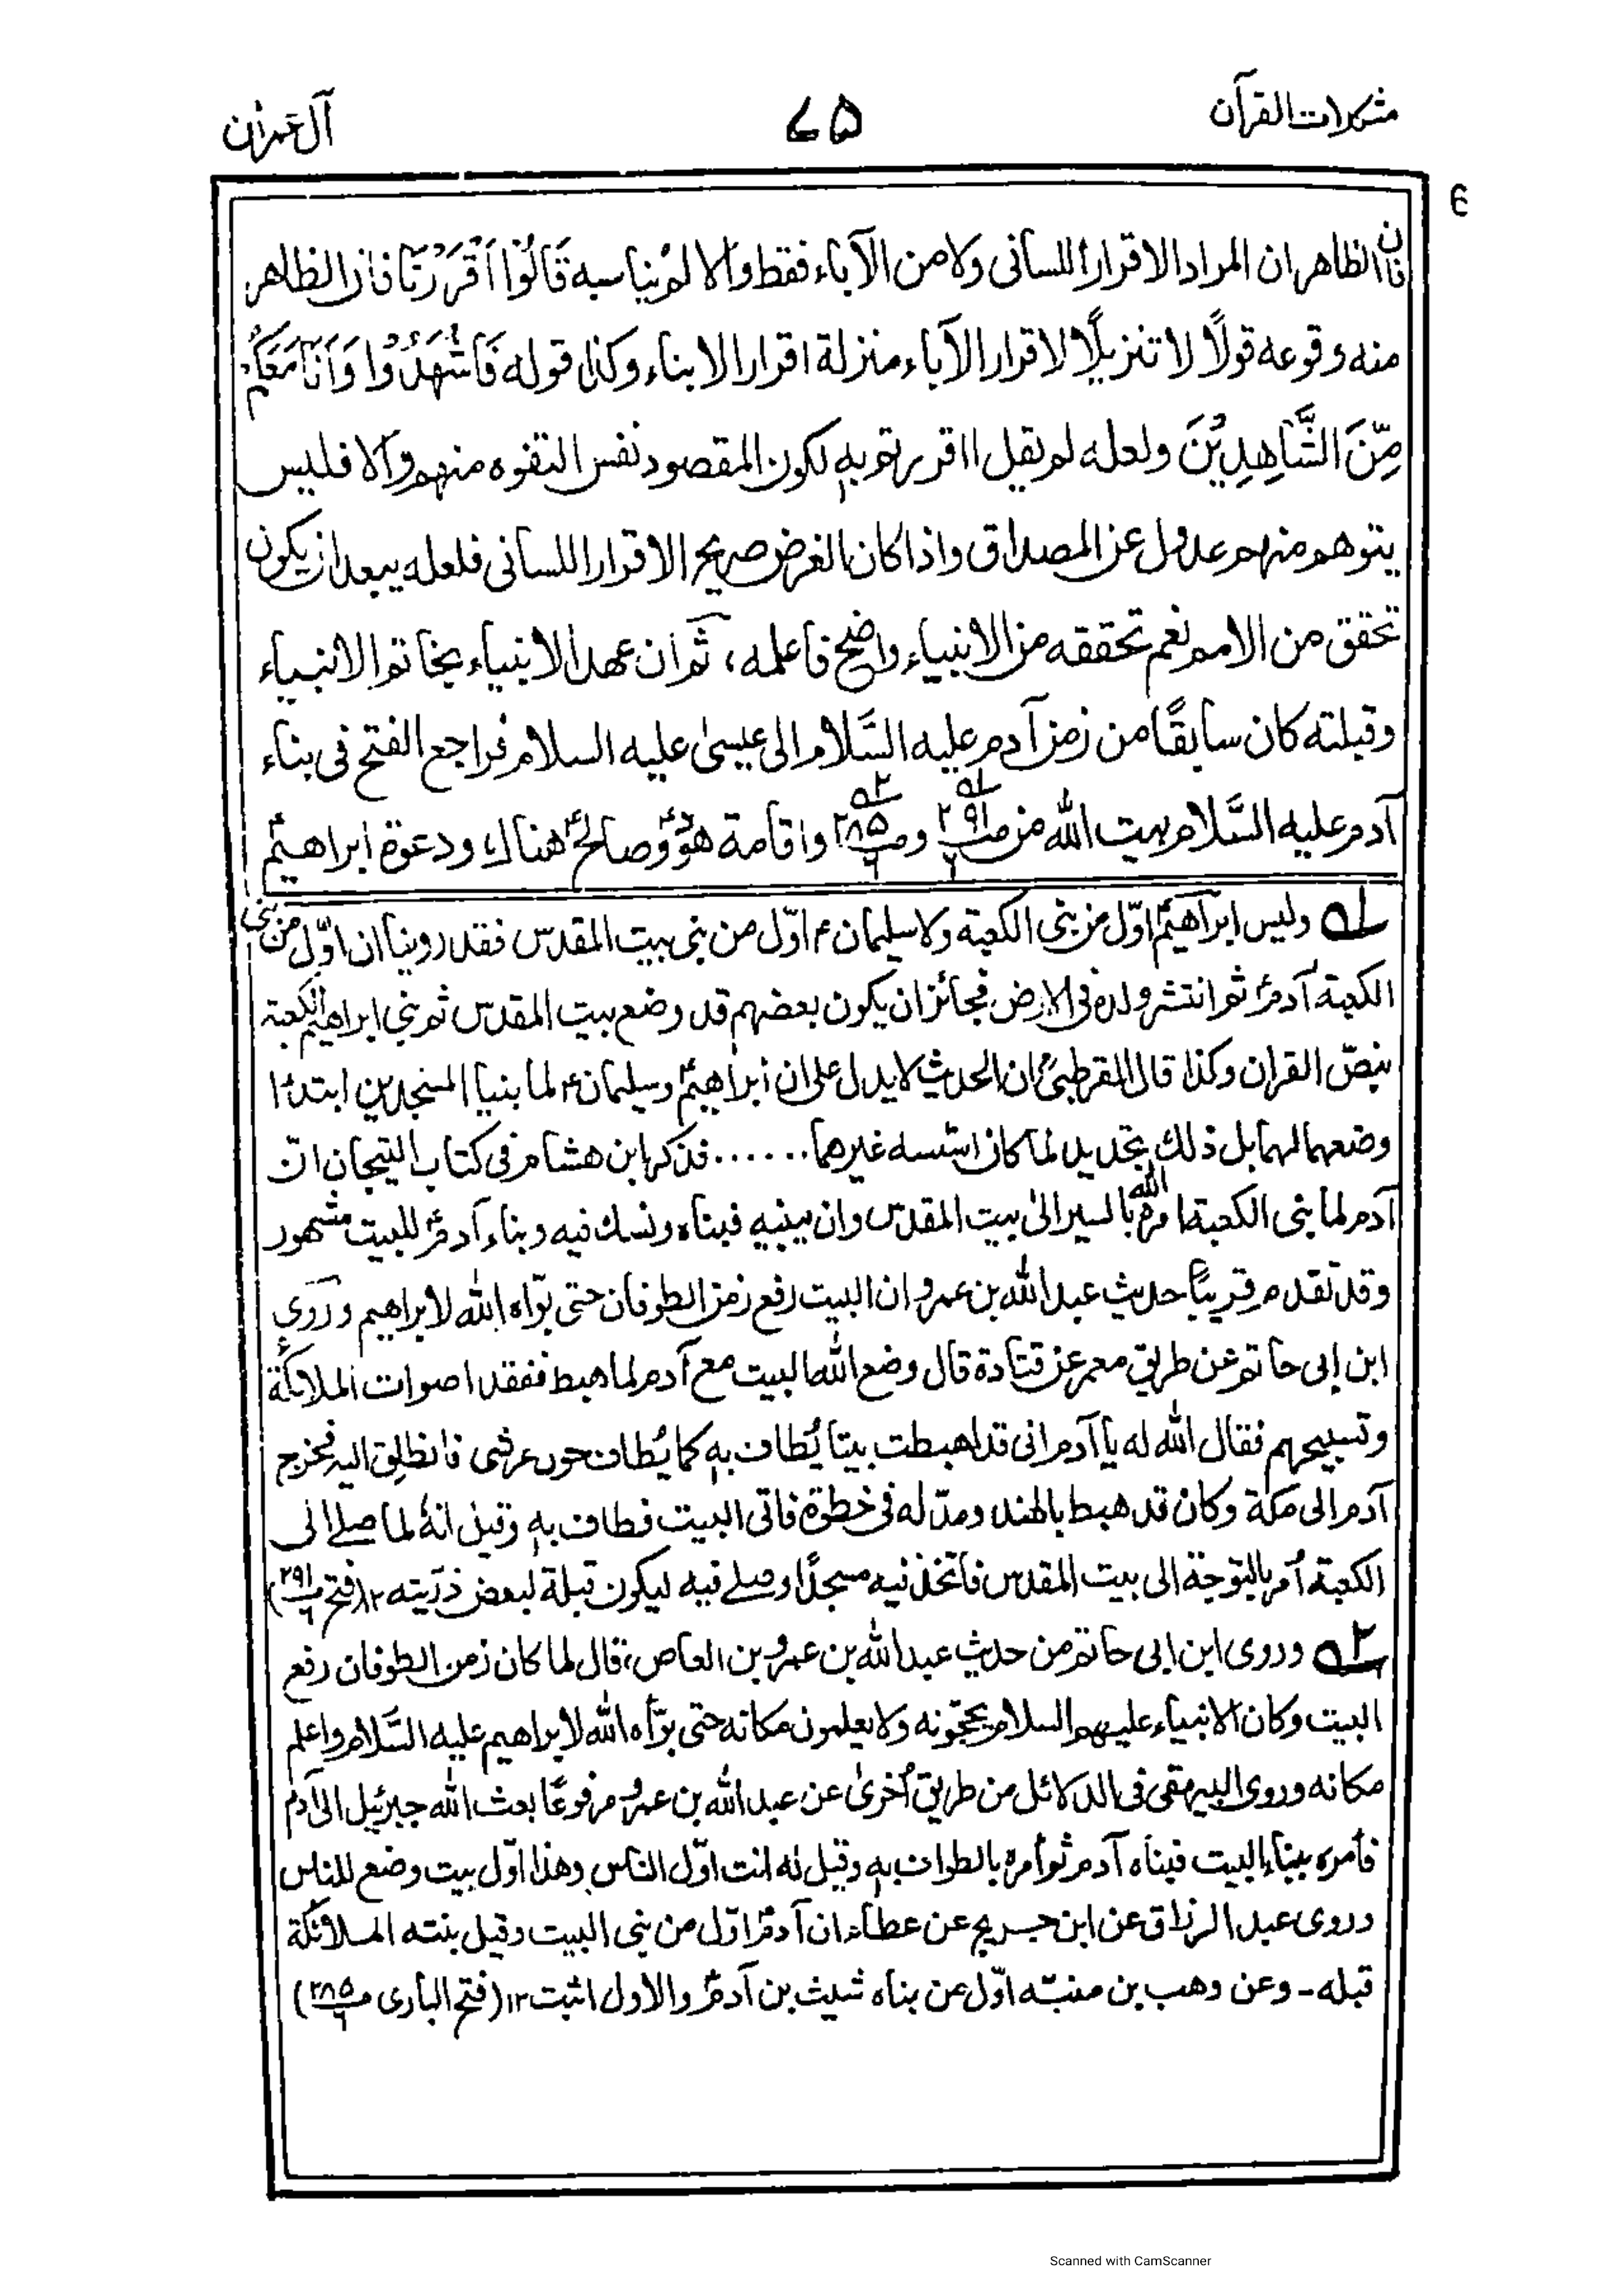 مشكلات القرآن
٧٥
آل عمران
6
فان الظاهر ان المراد الاقرار اللسانى ولا من الآباء فقط والا لم يناسبه قَالُوْا اَقْرَرْنَا فان الظاهر
منه وقوعه قولًا لا تنزيلًا لاقرار الآباء منزلة اقرار الابناء وكذا قوله فَاشْهَدُوْا وَاَنَا مَعَكُمْ
مِّنَ الشَّاهِدِيْنَ ولعله لم يقل أاقررتم به لكون المقصود نفس التفوه منهم والا فليس
يتوهم منهم عدول عن المصداق واذا كان الغرض صريح الاقرار اللسانى فلعله يبعد ان يكون
تحقق من الامم نعم تحققه من الانبياء واضح فاعلمه، ثم ان عهد الانبياء بخاتم الانبياء
وقبلته كان سابقًا من زمن آدم عليه السَّلام الى عيسىٰ عليه السلام فراجع الفتح فى بناء
آدم عليه السَّلام بيت الله من ص٢٩١/٦ لـه وص٢٨٥/٦ ٢ـه واقامة هودؑ وصالحؑ هناك، ودعوة ابراهيمؑ
لـه وليس ابراهيمؑ اوّل من بنى الكعبة ولا سليمانؑ اوّل من بنى بيت المقدس فقد روينا ان اوّل من بنى
الكعبة آدمؑ ثم انتشر ولده فى الارض فجائز ان يكون بعضهم قد وضع بيت المقدس ثم بنى ابراهيمؑ الكعبة
بنصّ القران وكذا قال القرطبىؒ ان الحديث لا يدل على ان ابراهيمؑ وسليمانؑ لما بنيا المسجدين ابتدئا
وضعهما لهما بل ذلك تجديد لما كان اسّسه غيرهما...... فذكر ابن هشام فى كتاب التيجان انّ
آدم لما بنى الكعبة امره الله بالسير الىٰ بيت المقدس وان يبنيه فبناه ونسك فيه وبناء آدمؑ للبيت مشهور
وقد تقدم قريبًا حديث عبد الله بن عمرو ان البيت رفع زمن الطوفان حتى بوّاه الله لابراهيم وروى
ابن ابى حاتم عن طريق معمر عن قتادة قال وضع الله البيت مع آدم لما هبط ففقد اصوات الملائكة
وتسبيحهم فقال الله له يا آدم انى قد اهبطت بيتا يُطاف به كما يُطاف حول عرشى فانطلِق اليه فخرج
آدم الى مكة وكان قد هبط بالهند ومدّ له فى خطوة فاتى البيت فطاف به وقيل انهٗ لما صلى الى
الكعبة اُمر بالتوجّه الى بيت المقدس فاتخذ فيه مسجدًا وصلى فيه ليكون قبلة لبعض ذرّيته ١٢ (فتح ص٢٩١/٦)
٢ـه وروى ابن ابى حاتم من حديث عبد الله بن عمرو بن العاص، قال لما كان زمن الطوفان رفع
البيت وكان الانبياء عليهم السلام يحجّونه ولا يعلمون مكانه حتى بوّأه الله لابراهيم عليه السَّلام واعلم
مكانه وروى البيهقى فى الدلائل من طريق اُخرىٰ عن عبد الله بن عمرو مرفوعًا بعث الله جبرئيل الى آدم
فأمره ببناء البيت فبناه آدم ثم أمره بالطواف به وقيل له انت اوّل الناس وهذا اوّل بيت وضع للناس
وروى عبد الرزاق عن ابن جريج عن عطاء ان آدمؑ اوّل من بنى البيت وقيل بنته الملائكة
قبله - وعن وهب بن منبّه اوّل من بناه شيث بن آدمؑ والاول اثبت ١٢ (فتح البارى ص٢٨٥/٦)
Scanned with CamScanner